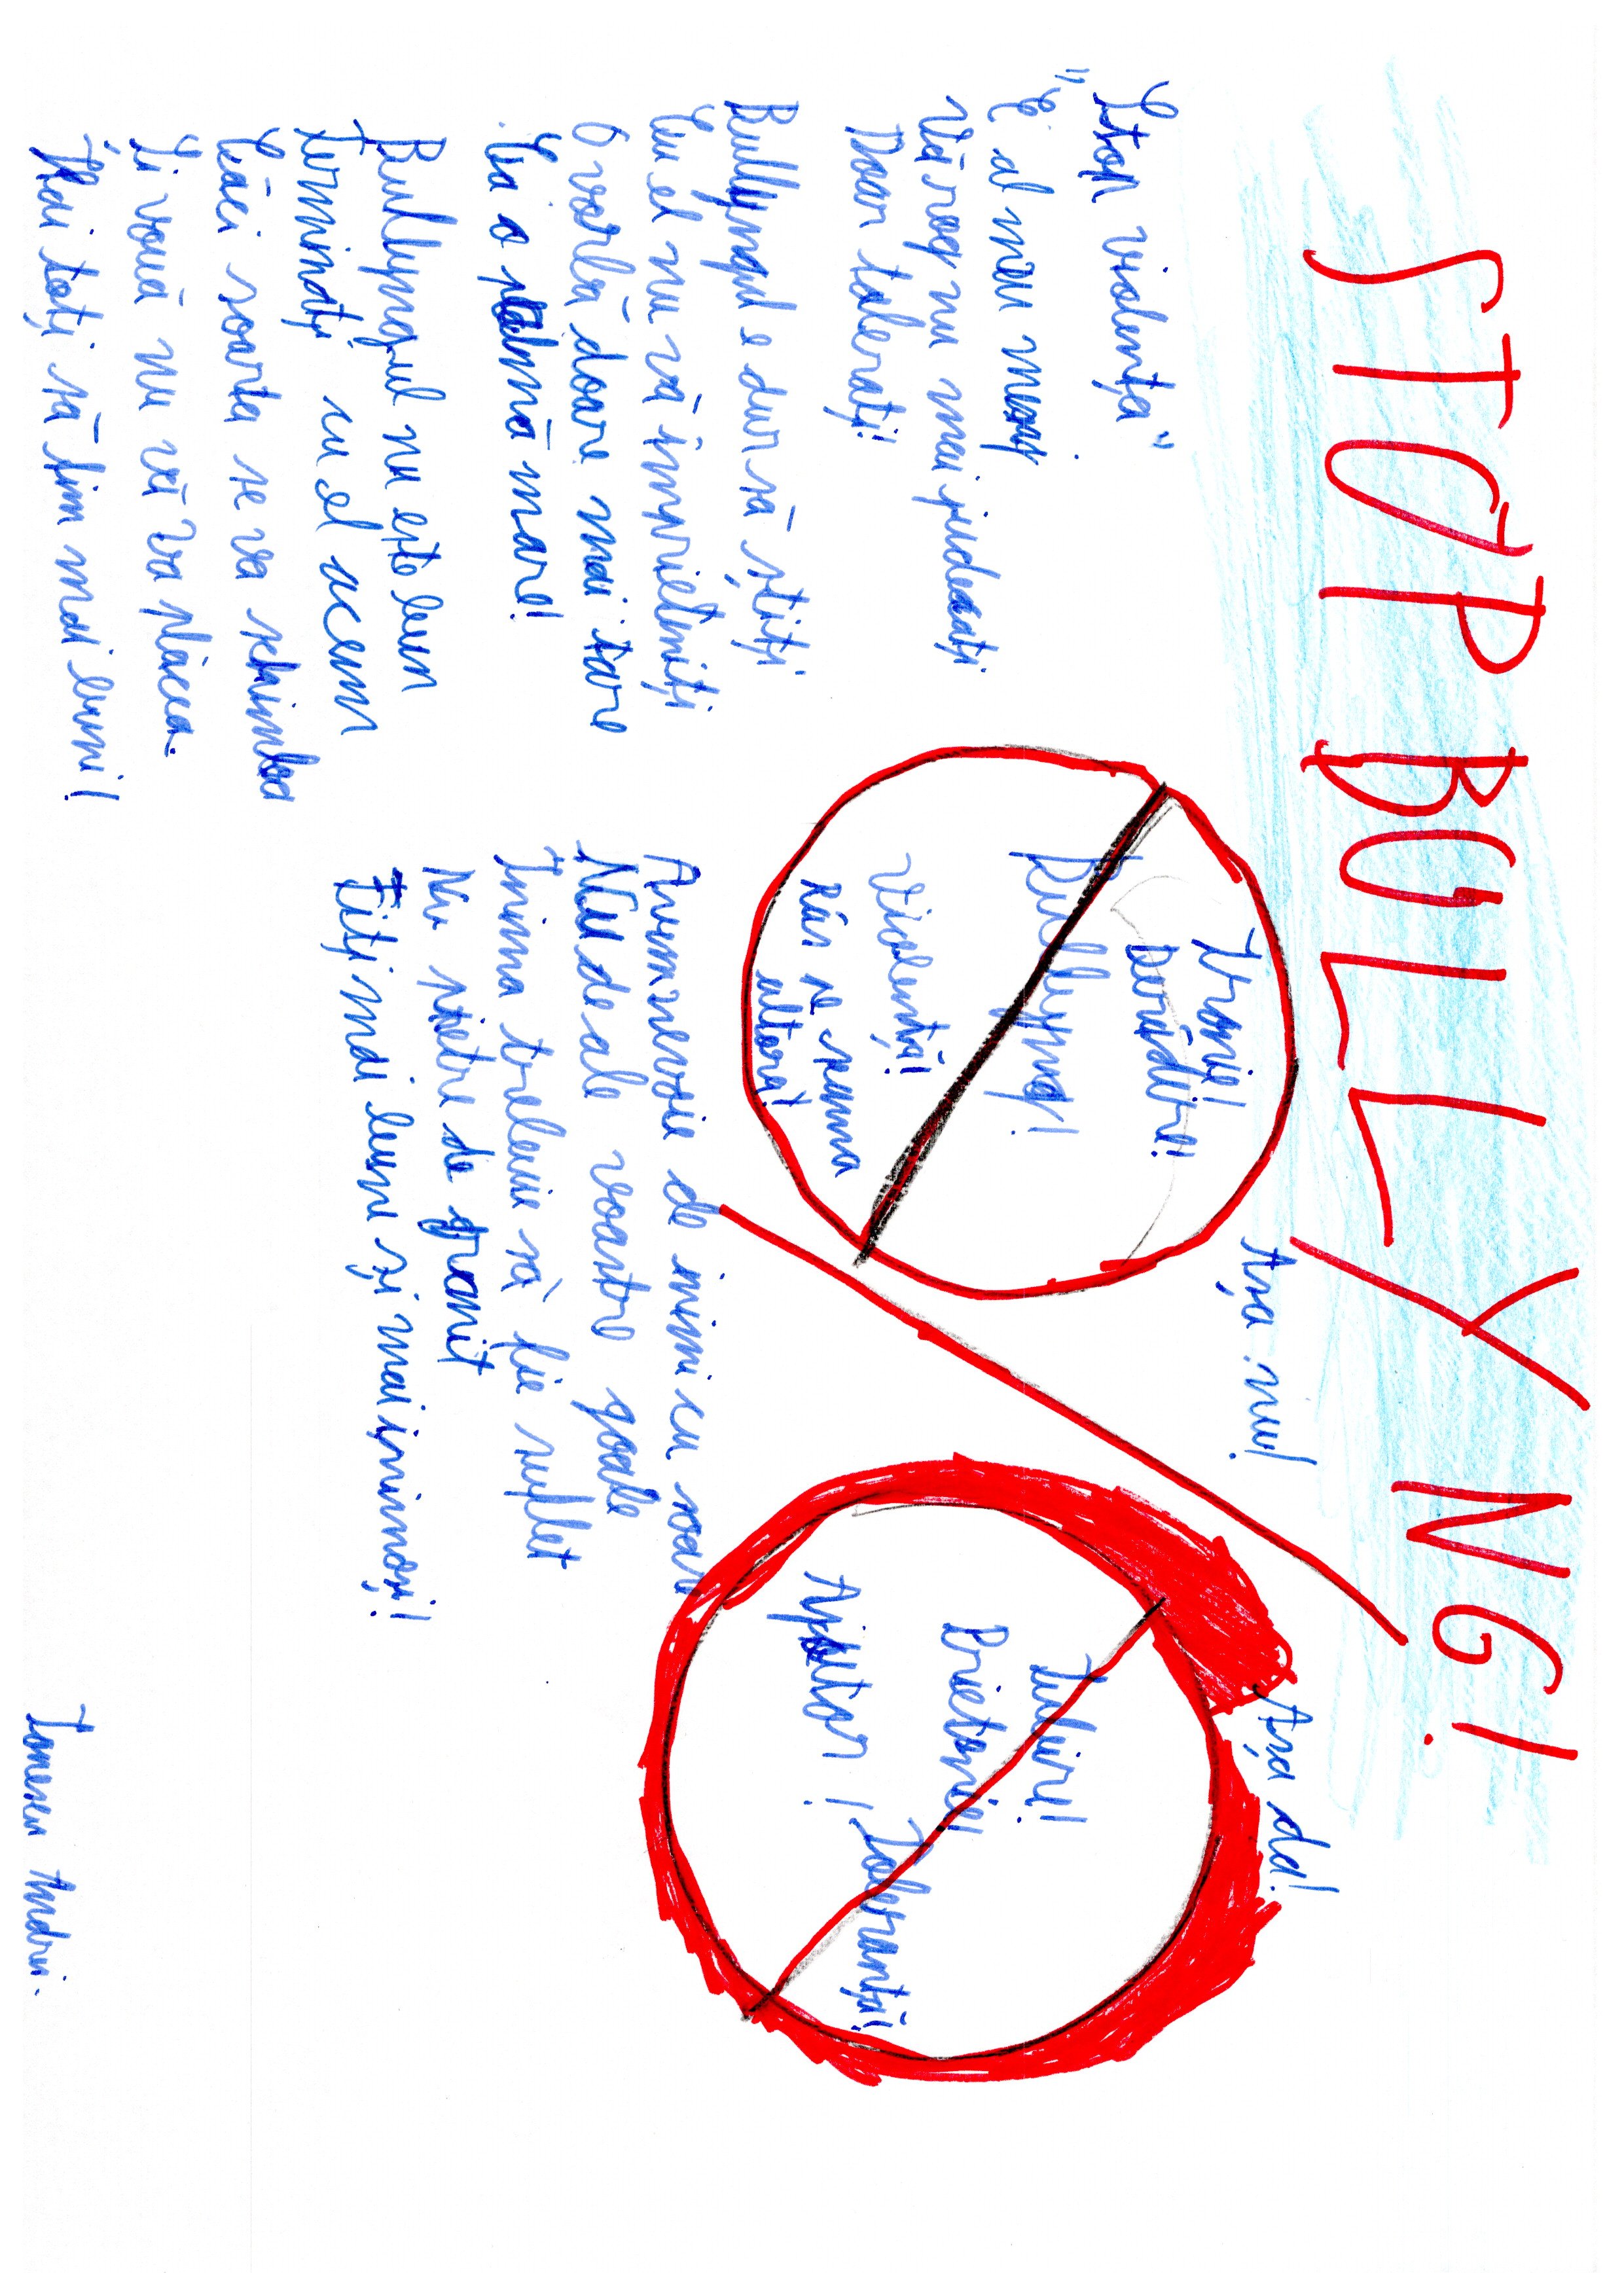 STOP BULLYNG!
Stop violența"
"E al meu mesaj
Vă rog nu mai judecați.
Doar tolerați!
Bullyngul e dur să știți
Cu el nu vă împrieteniți
O vorbă doare mai tare
Ca o palmă mare!
Bullyngul nu este bun
Terminați cu el acum
Căci soarta se va schimba
Și vouă nu vă va plăcea.
Haideți toți să fim mai buni!
Așa nu!
Ironie!
Porădire!
Bullyng!
Violență!
Râs pe seama
altora!
Așa da!
Iubire!
Prietenie!
Ajutor!
Toleranță!
Avem nevoie de inimi cu soare
NU de ale voastre goale
Inima trebuie să fie suflet
Nu pietre de granit
Fiți mai buni și mai inimoși!
Ionescu Andrei.